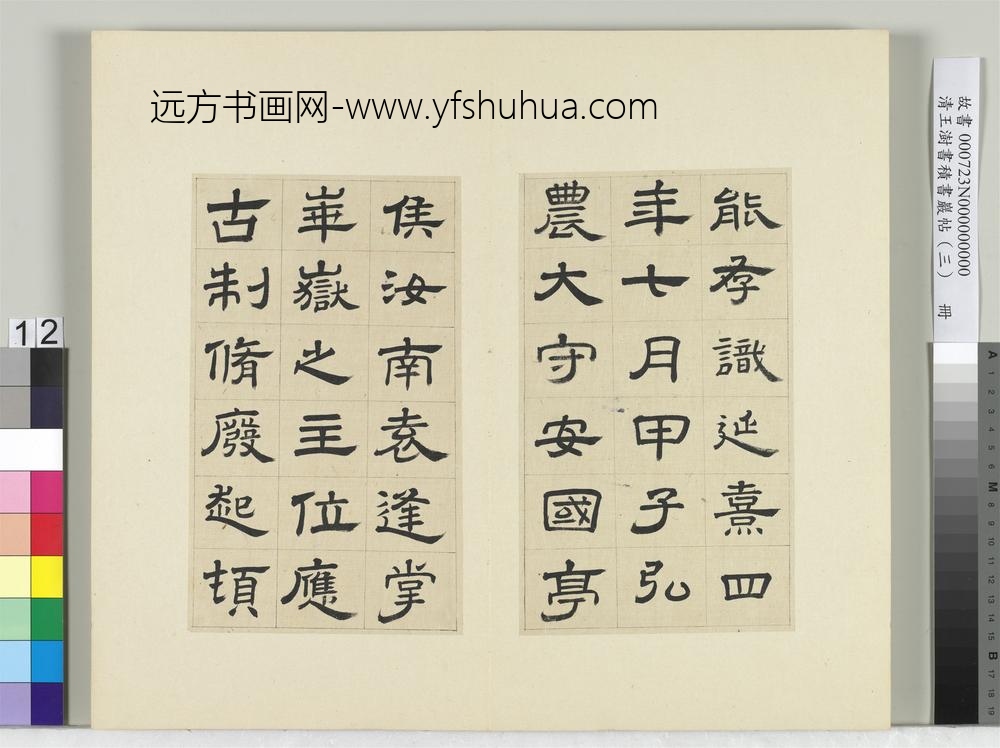 远方书画网-www.yfshuhua.com
能存識延熹四
年七月甲子弘
農大守安國亭
侯汝南袁逢掌
華嶽之主位應
古制脩廢起頓
故書000723N000000000
清王澍書積書巖帖(三) 冊
12
A
1
2
3
4
5
6
M
8
9
10
11
12
13
14
15
B
17
18
19